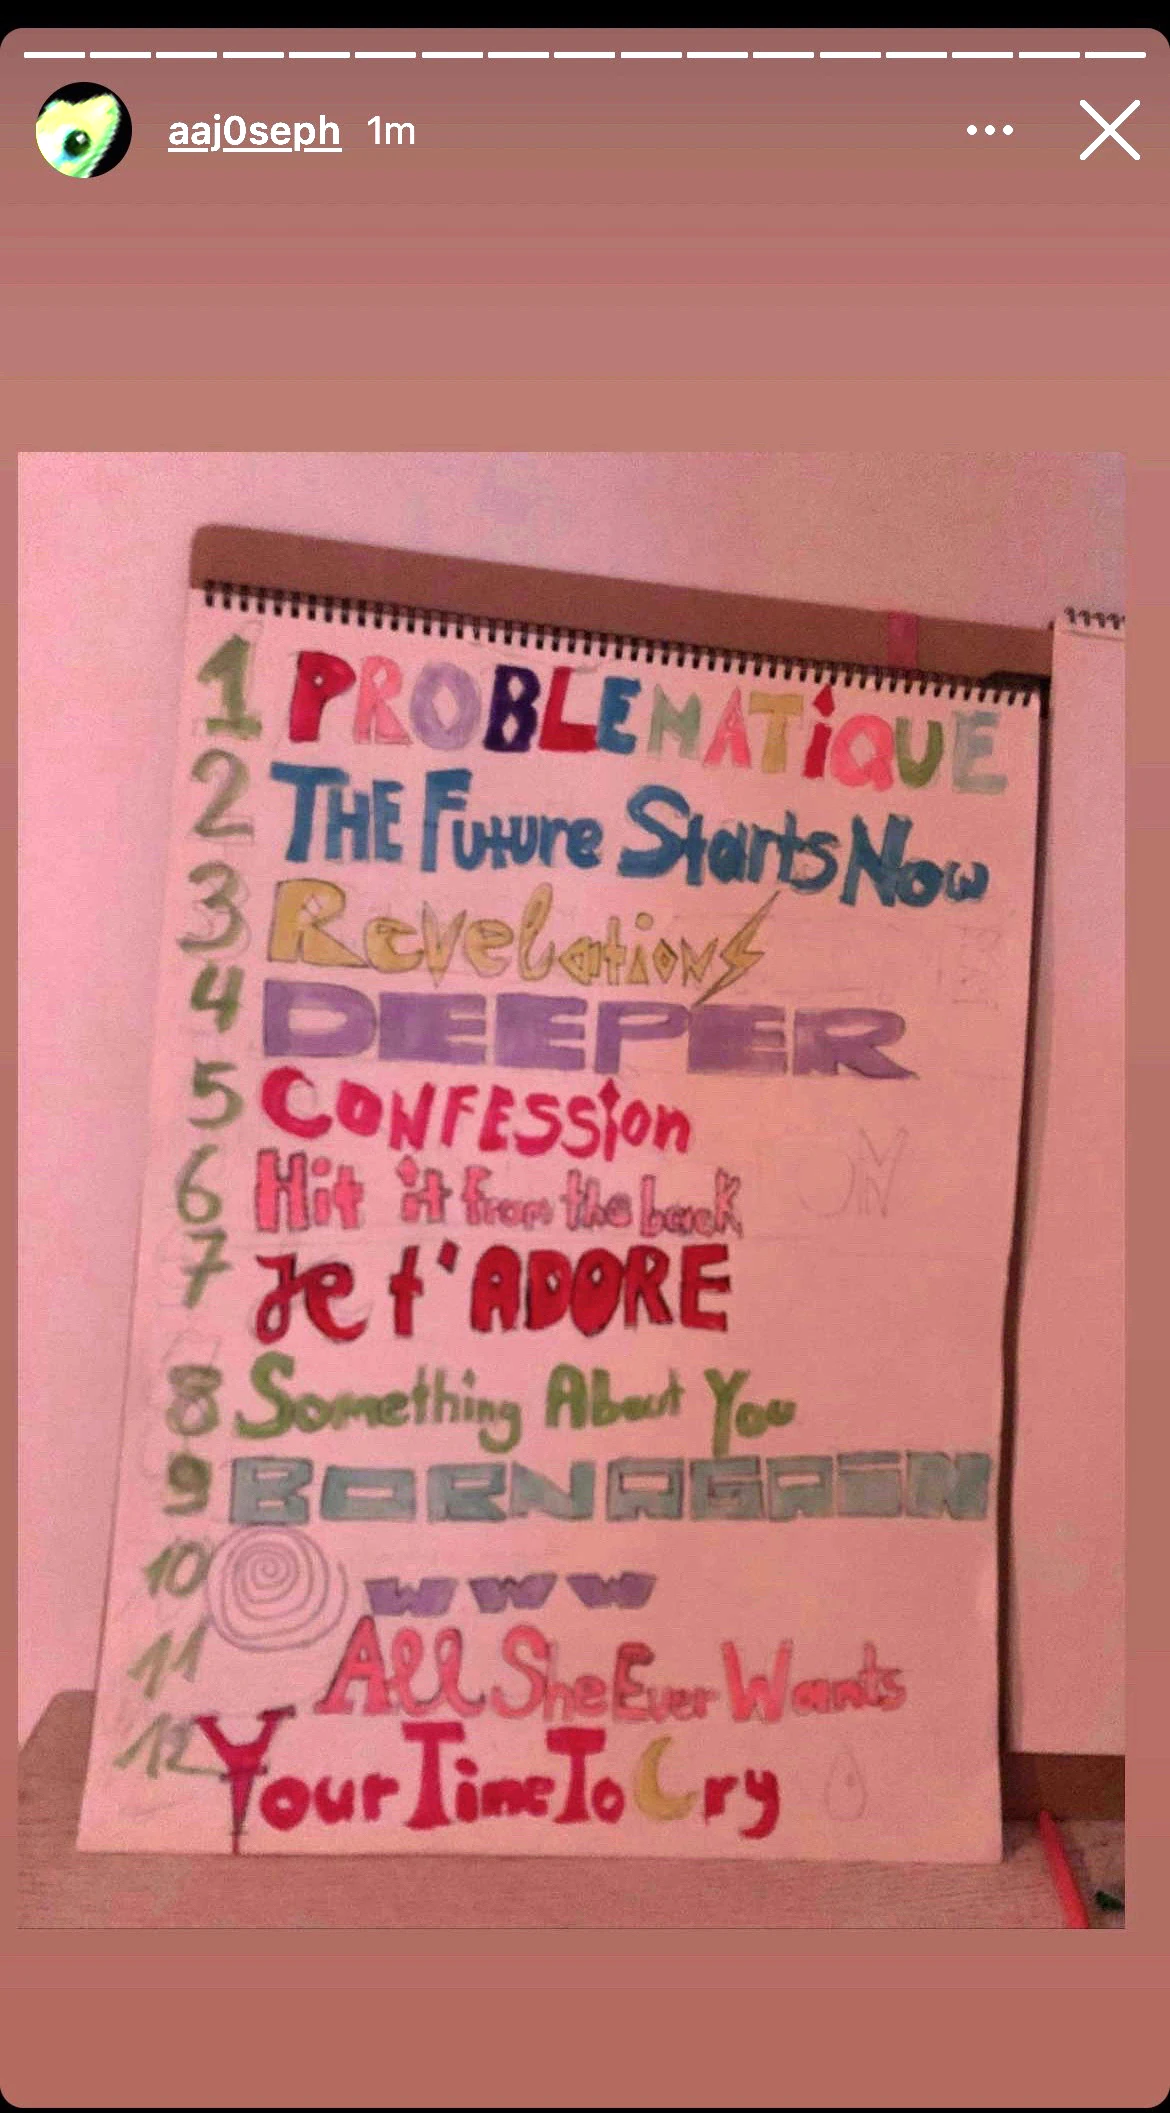 aaj0seph 1m
1 PROBLEMATiQUE
2 THE Future Starts Now
3 Revelations
4 DEEPER
5 CONFESSion
6 Hit it from the back
7 Je t'ADORE
8 Something About You
9 BORN AGAiN
10 www
11 All She Ever Wants
12 Your Time To Cry